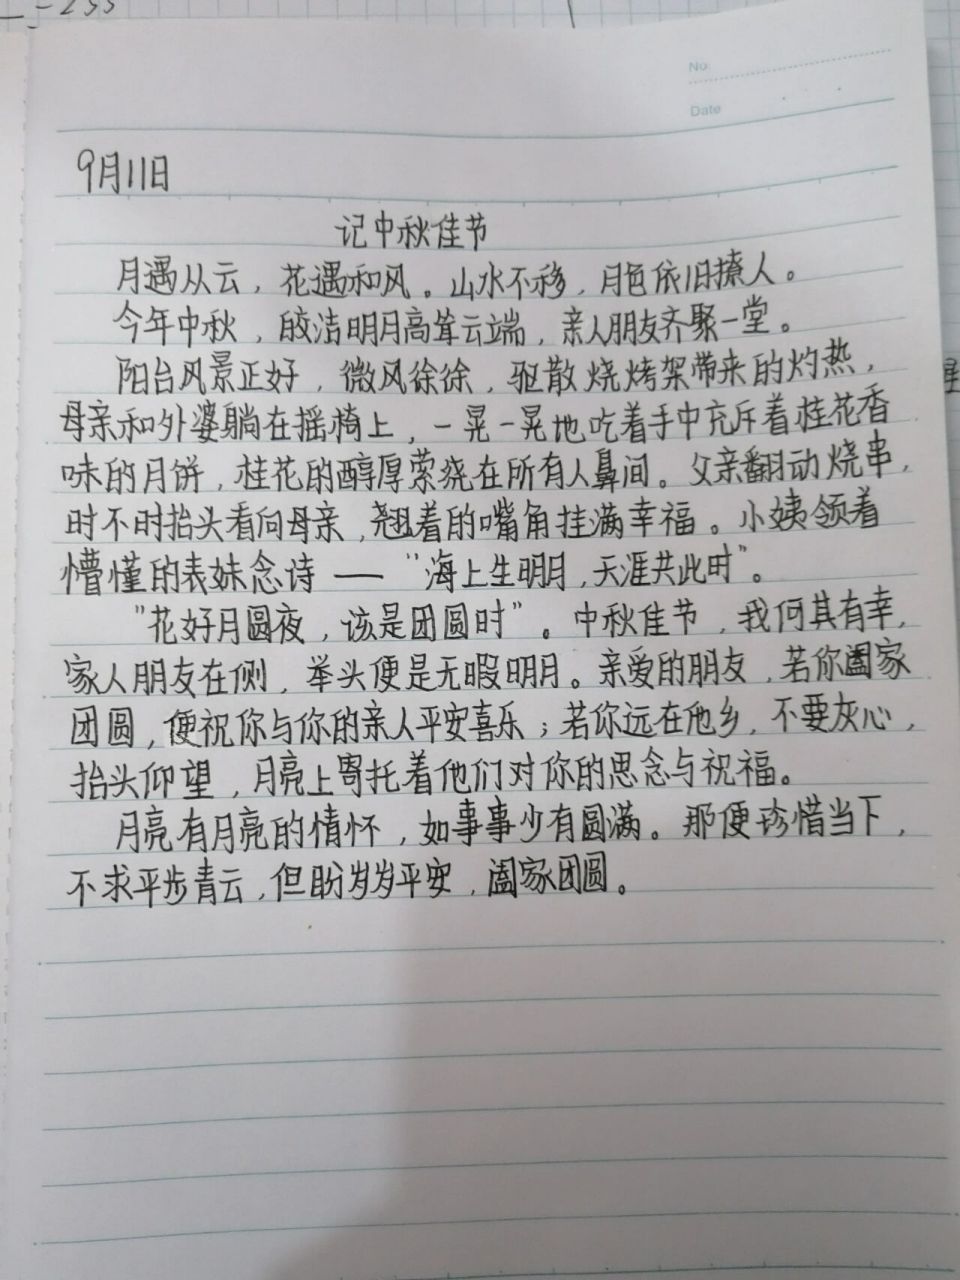 -255
No.
Date
9月11日
记中秋佳节
月遇从云，花遇和风。山水不移，月色依旧撩人。
今年中秋，皎洁明月高耸云端，亲人朋友齐聚一堂。
阳台风景正好，微风徐徐，驱散烧烤架带来的灼热，
母亲和外婆躺在摇椅上，一晃一晃地吃着手中充斥着桂花香
味的月饼，桂花的醇厚萦绕在所有人鼻间。父亲翻动烧串，
时不时抬头看向母亲，翘着的嘴角挂满幸福。小姨领着
懵懂的表妹念诗——“海上生明月，天涯共此时”。
"花好月圆夜，该是团圆时"。中秋佳节，我何其有幸，
家人朋友在侧，举头便是无暇明月。亲爱的朋友，若你阖家
团圆，便祝你与你的亲人平安喜乐；若你远在他乡，不要灰心，
抬头仰望，月亮上寄托着他们对你的思念与祝福。
月亮有月亮的情怀，如事事少有圆满。那便珍惜当下，
不求平步青云，但盼岁岁平安，阖家团圆。